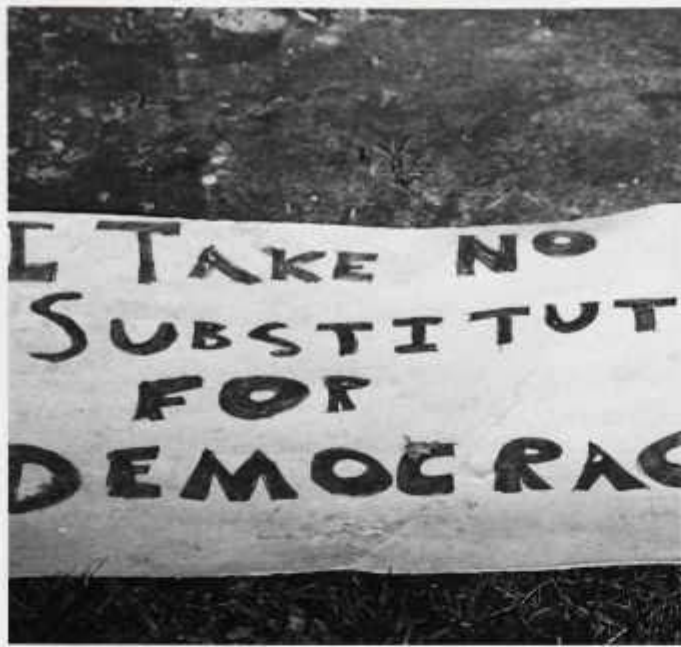 I TAKE NO
SUBSTITUT
FOR
DEMOCRAC